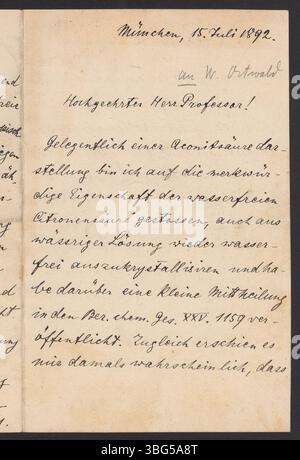 München, 15. Juli 1892.
an W. Ostwald
Hochgeehrter Herr Professor!
Gelegentlich einer Aconitsäure dar-
stellung bin ich auf die merkwür-
dige Eigenschaft der wasserfreien
Citronensäure gestossen, auch aus
wässriger Lösung wieder wasser-
frei auszukrystallisiren und ha-
be darüber eine kleine Mittheilung
in den Ber. chem. Ges. XXV. 1159 ver-
öffentlicht. Zugleich erschien es
mir damals wahrscheinlich, dass
alamy
Image ID: 3BG5A8T
www.alamy.com